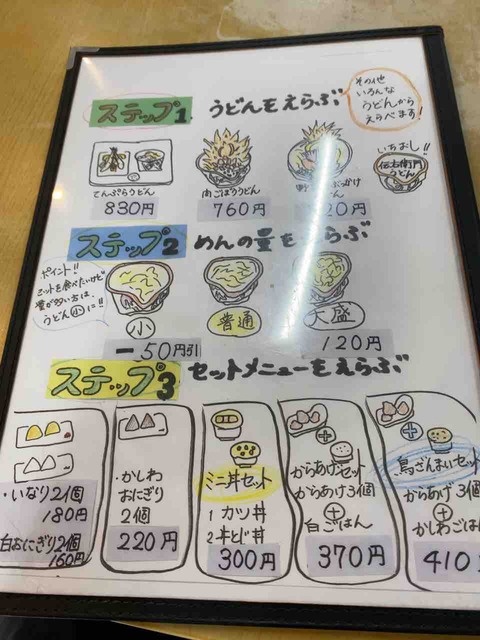 ステップ1. うどんをえらぶ
その他
いろんな
うどんから
えらべます!
てんぷらうどん
830円
肉ごぼううどん
760円
ぶっかけ
うどん
20円
いちおし!!
伝右衛門
うどん
ステップ2 めんの量をえらぶ
ポイント!!
セットを食べたいけど
量が多い方は、
うどん小に!!
小
-50円引
普通
大盛
120円
ステップ3 セットメニューをえらぶ
・いなり2個
180円
白おにぎり2個
160円
・かしわ
おにぎり
2個
220円
ミニ丼セット
1 カツ丼
2 丼とじ丼
300円
からあげセット
からあげ3個
白ごはん
370円
鳥ざんまいセット
からあげ3個
かしわごはん
410